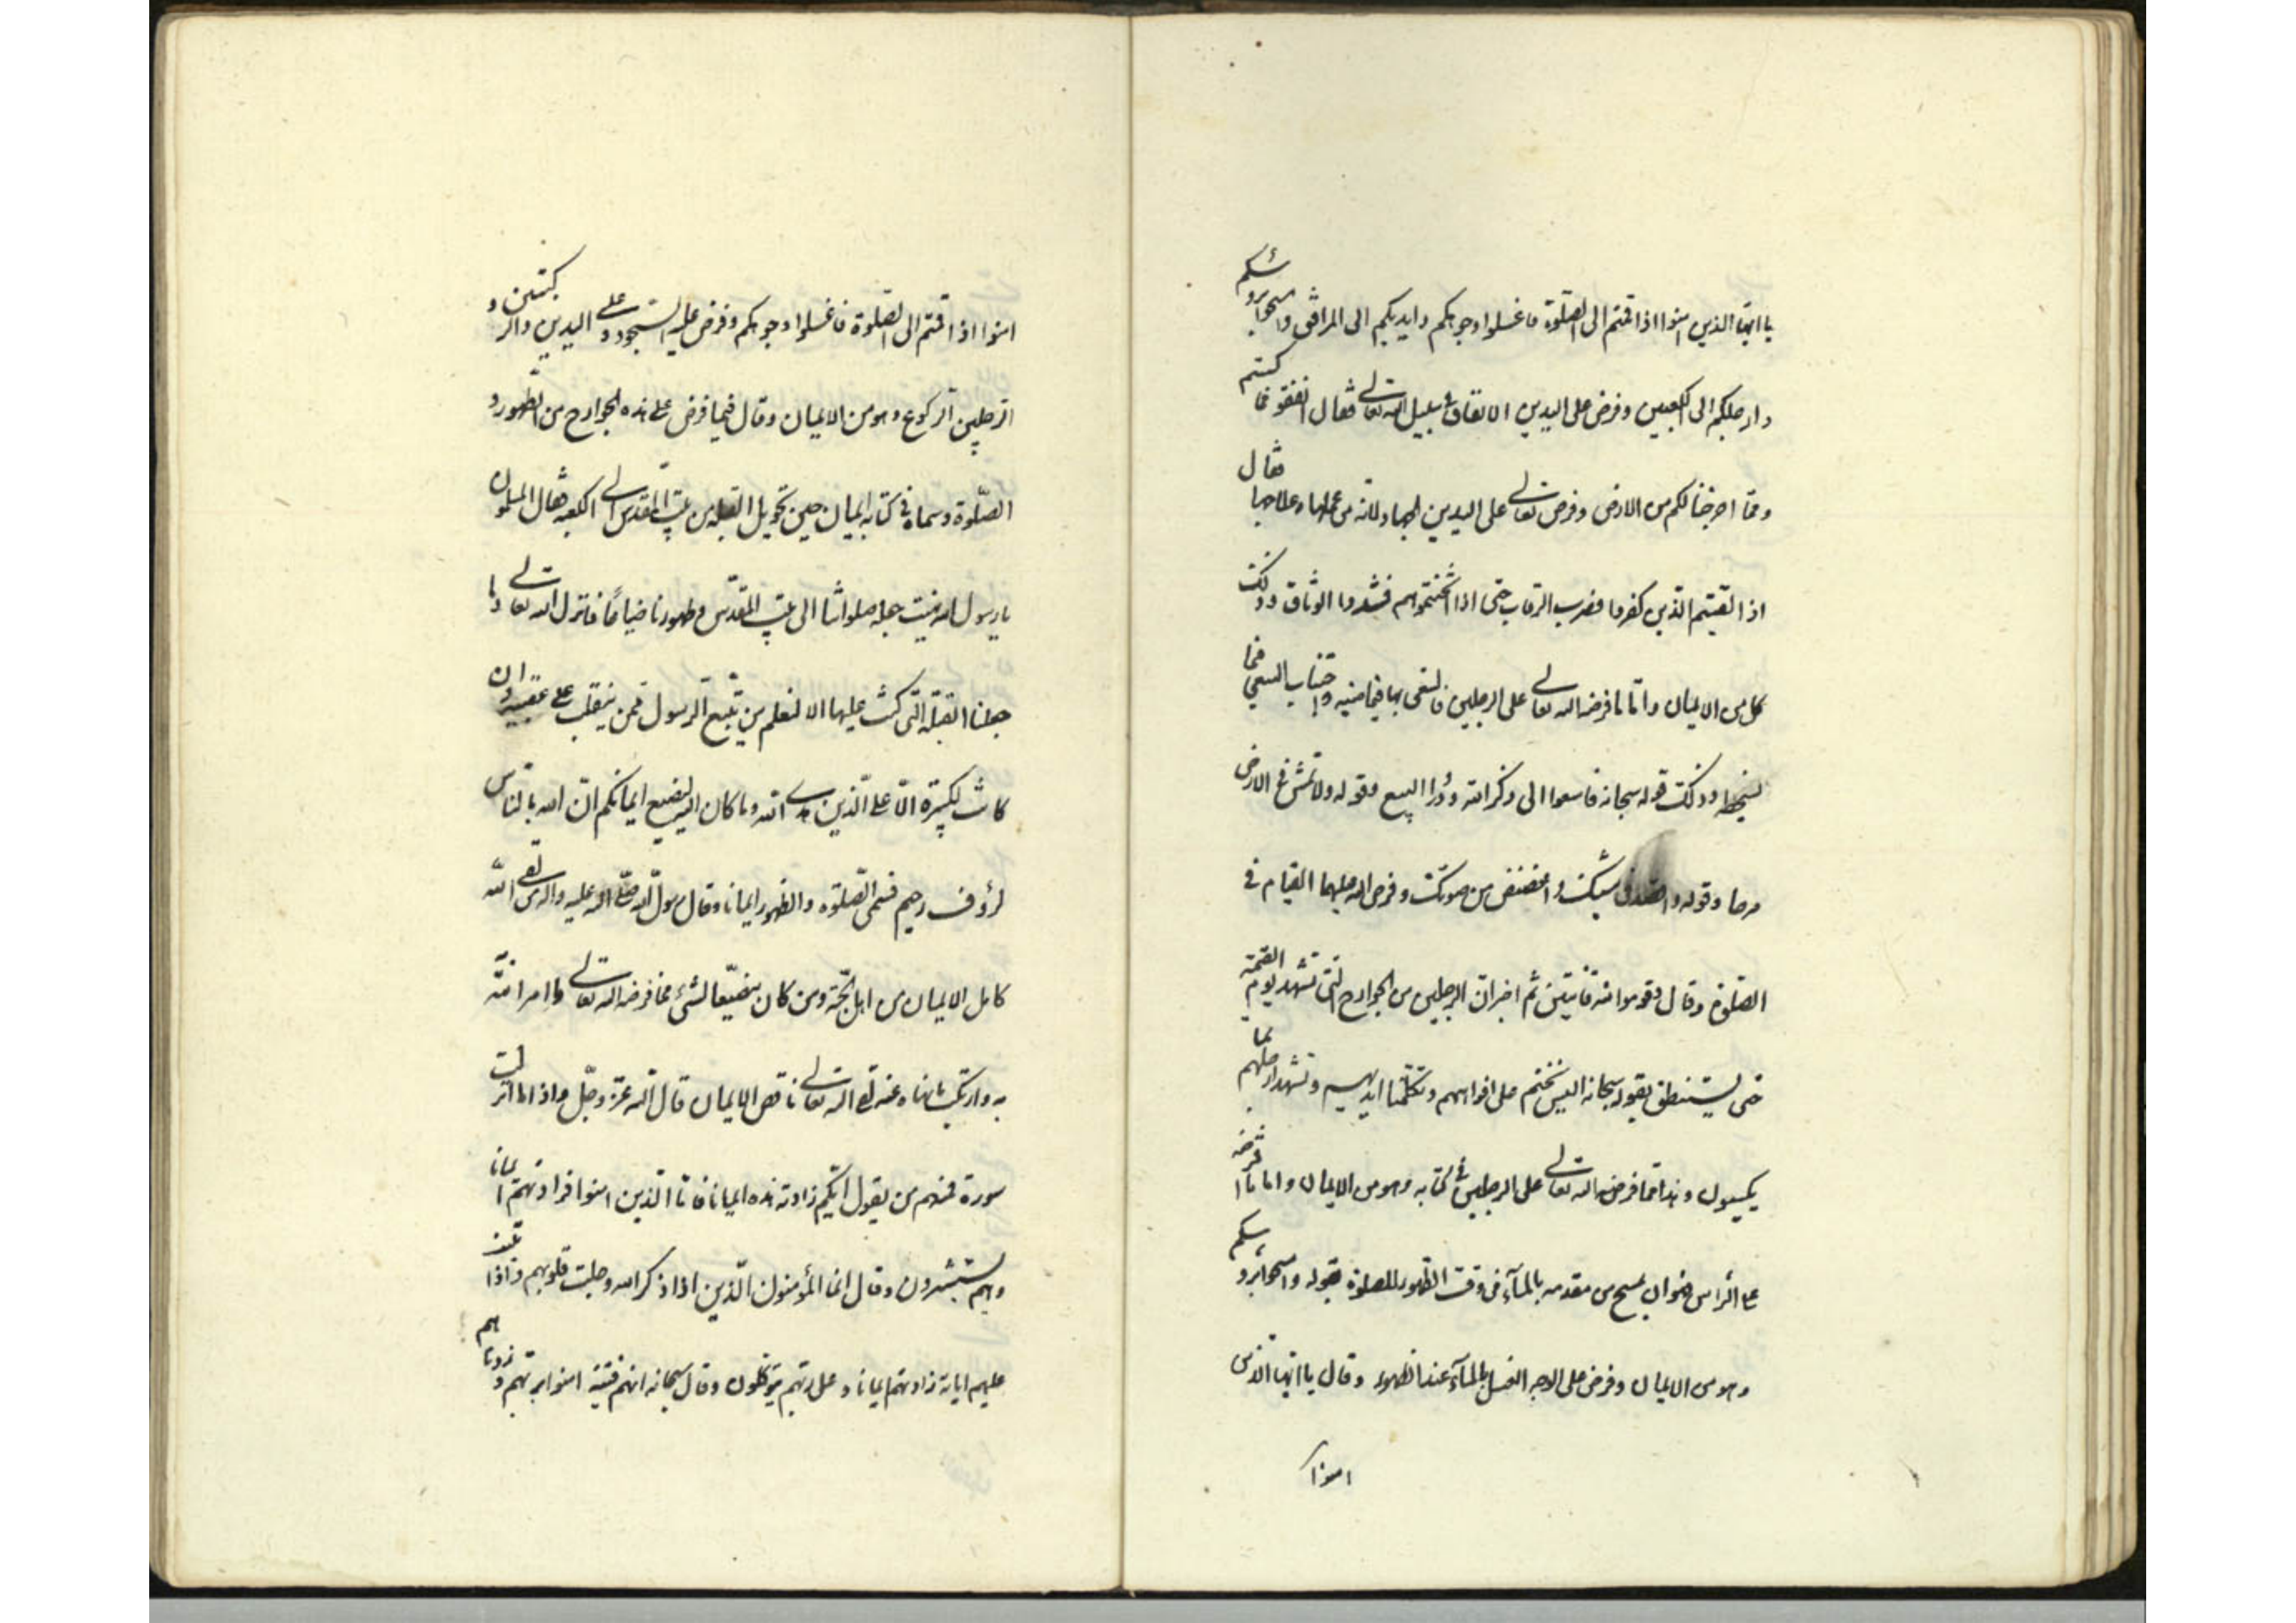 يا ايها الذين امنوا اذا قمتم الى الصلوة فاغسلوا وجوهكم وايديكم الى المرافق وامسحوا برؤسكم
وارجلكم الى الكعبين وفرض على اليدين الانفاق في سبيل الله تعالى فقال انفقوا مما كسبتم
ومما اخرجنا لكم من الارض وفرض تعالى على اليدين الجهاد لانه من عملها وعلاجها فقال
اذا لقيتم الذين كفروا فضرب الرقاب حتى اذا اثخنتموهم فشدوا الوثاق وذلك
كل من الايمان واما ما فرضه الله تعالى على الرجلين فالسعى بها فيما فيه واجتناب السعى فيما
يسخطه وذلك قوله سبحانه فاسعوا الى ذكر الله وذروا البيع وقوله ولا تمش في الارض
مرحا وقوله واقصد في مشيك واغضض من صوتك وفرض الله عليهما القيام في
الصلوة وقال وقوموا لله قانتين ثم اخبر ان الرجلين من الجوارح التى تشهد يوم القيمة
حتى يستنطق بقوله سبحانه اليوم نختم على افواههم وتكلمنا ايديهم وتشهد ارجلهم بما
يكسبون وهذا مما فرضه الله تعالى على الرجلين في كتابه وهو من الايمان واما ما افترضه
على الراس فهو ان يمسح من مقدمه بالماء في وقت الطهور للصلوة بقوله وامسحوا برؤسكم
وهو من الايمان وفرض على الوجه الغسل بالماء عند الطهور وقال يا ايها الذين
امنوا
امنوا اذا قمتم الى الصلوة فاغسلوا وجوهكم وفرض عليه السجود وعلى اليدين والركبتين و
الرجلين الركوع وهو من الايمان وقال فيما فرض على هذه الجوارح من الطهور و
الصلوة وسماه في كتابه ايمان حين تحويل القبلة من بيت المقدس الى الكعبه فقال المسلمون
يا رسول الله ذهبت صلواتنا الى بيت المقدس وطهورنا ضياعا فانزل الله تعالى وما
جعلنا القبلة التى كنت عليها الا لنعلم من يتبع الرسول ممن ينقلب على عقبيه وان
كانت لكبيرة الا على الذين هدى الله وما كان الله ليضيع ايمانكم ان الله بالناس
لرؤف رحيم فسمى الصلوة والطهور ايمانا وقال رسول الله صلى الله عليه واله من لقى الله
كامل الايمان من اهل الجنة ومن كان مضيعا لشىء مما فرضه الله تعالى وامر الله
به وارتكب ما نهاه عنه لقى الله تعالى ناقص الايمان قال الله عز وجل واذا ما انزلت
سورة فمنهم من يقول ايكم زادته هذه ايمانا فاما الذين امنوا فزادتهم ايمانا
وهم يستبشرون وقال انما المؤمنون الذين اذا ذكر الله وجلت قلوبهم واذا تليت
عليهم اياته زادتهم ايمانا وعلى ربهم يتوكلون وقال سبحانه انهم فتية امنوا بربهم وزدناهم